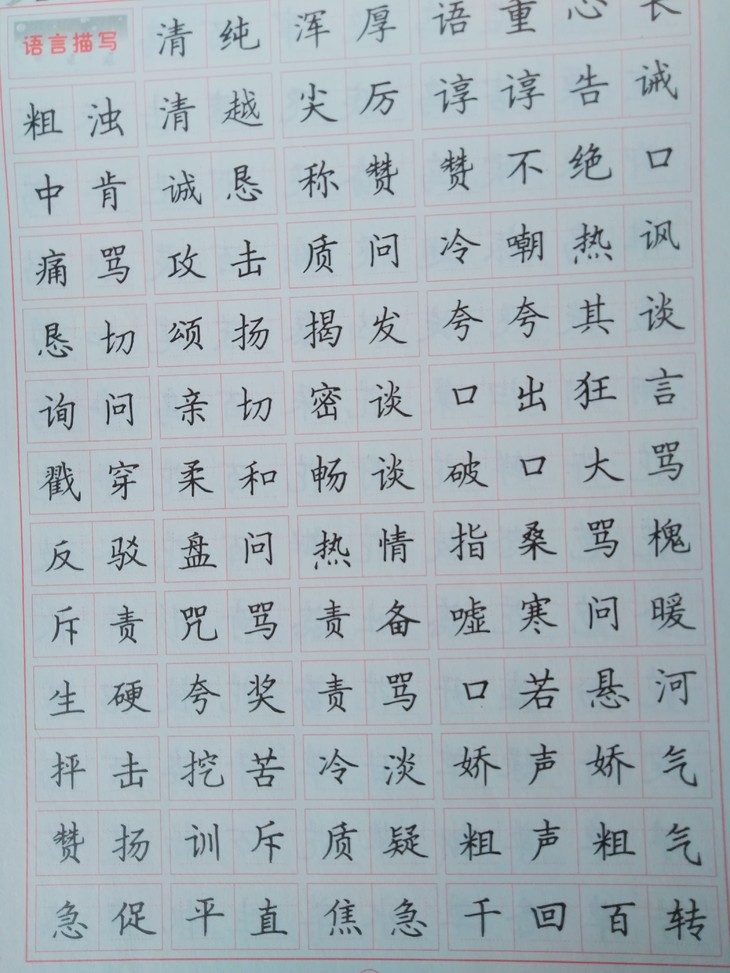 语言描写 清纯 浑厚 语重心长
粗浊 清越 尖厉 谆谆告诫
中肯 诚恳 称赞 赞不绝口
痛骂 攻击 质问 冷嘲热讽
恳切 颂扬 揭发 夸夸其谈
询问 亲切 密谈 口出狂言
戳穿 柔和 畅谈 破口大骂
反驳 盘问 热情 指桑骂槐
斥责 咒骂 责备 嘘寒问暖
生硬 夸奖 责骂 口若悬河
抨击 挖苦 冷淡 娇声娇气
赞扬 训斥 质疑 粗声粗气
急促 平直 焦急 千回百转